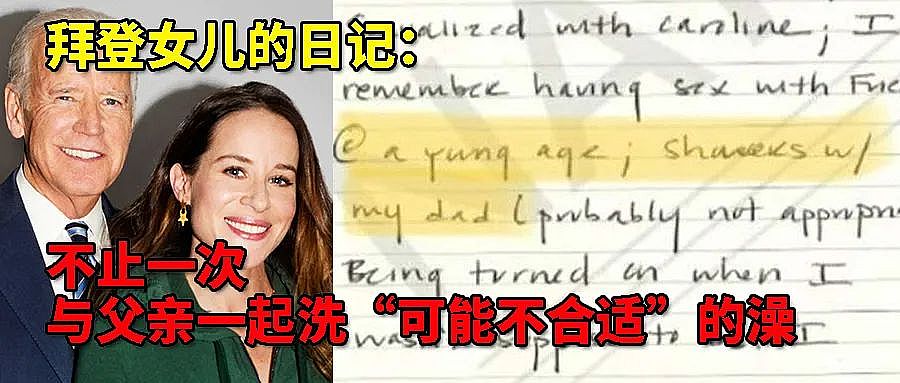 拜登女儿的日记：
不止一次
与父亲一起洗“可能不合适”的澡
with caroline; I
remember having sex with
@ a yung age; showers w/
my dad (probably not
Being turned on when I
I